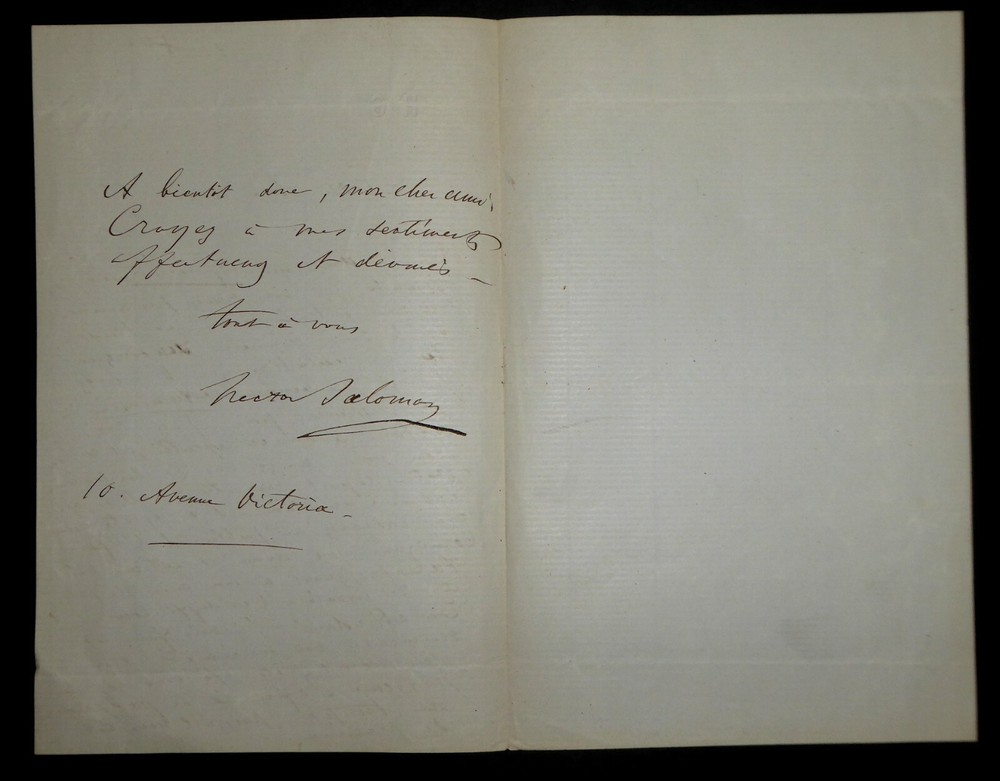 A bientôt donc, mon cher ami.
Croyez à mes sentiments
affectueux et dévoués _
tout à vous
Hector Salomon
10. Avenue Victoria _